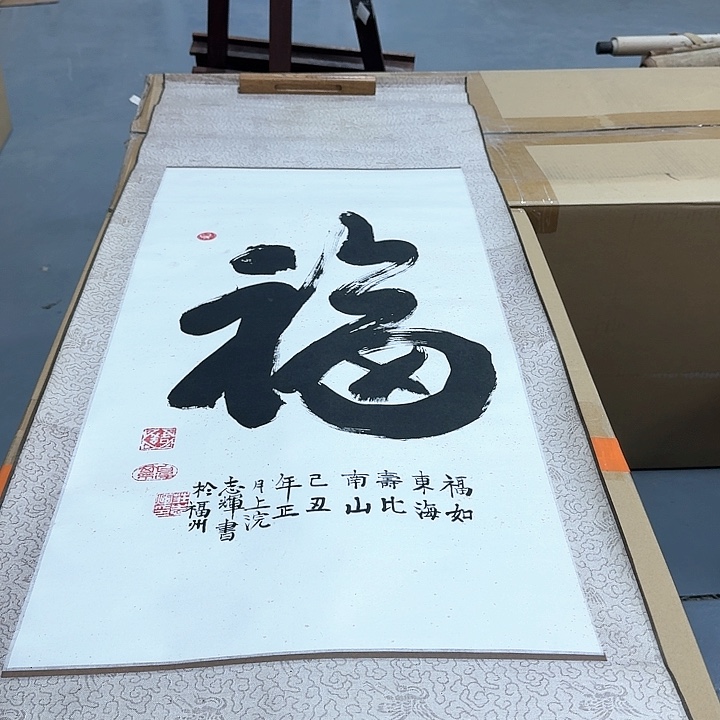 福
福如
東海
壽比
南山
己丑
年正
月上浣
志輝書
於福州